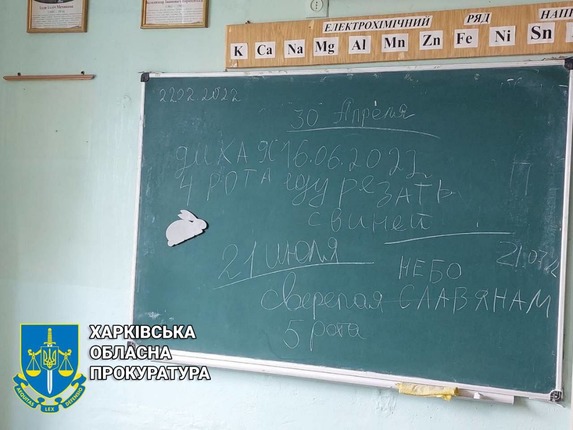 ЕЛЕКТРОХІМІЧНИЙ РЯД НАП
K Ca Na Mg Al Mn Zn Fe Ni Sn
2202 2022
30 Апреля
дикая 16.06.2022
4 РОТА иду РЕЗАТЬ
свиней !
21 июля
21.07.2
НЕБО
свирепая СЛАВЯНАМ
5 рота
ХАРКІВСЬКА
ОБЛАСНА
ПРОКУРАТУРА
AEQUITAS LEX